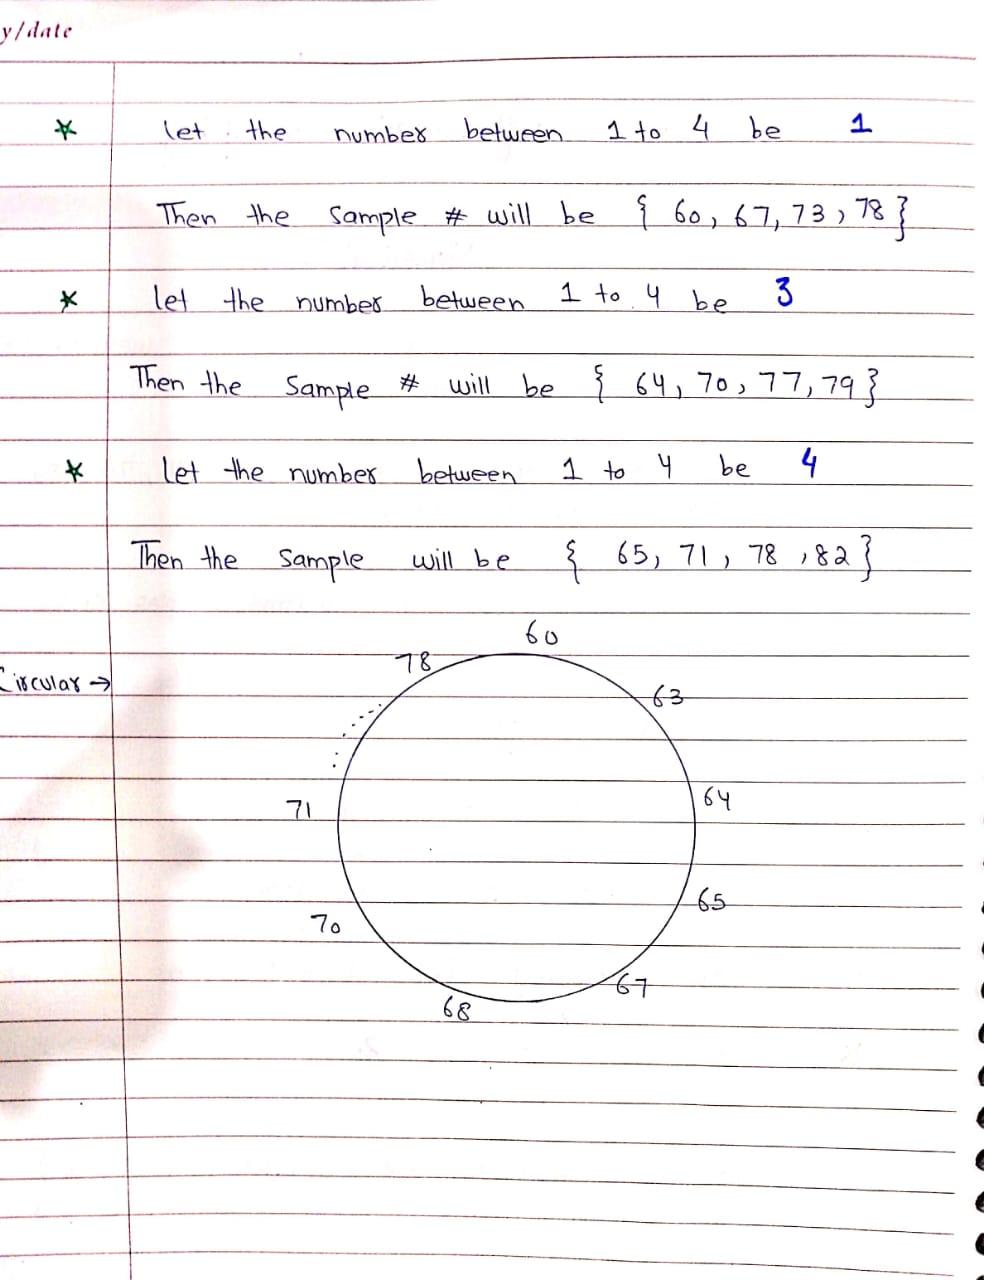 y/date
let the number between 1 to 4 be 1
Then the sample # will be { 60, 67, 73, 78 }
let the number between 1 to 4 be 3
Then the Sample # will be { 64, 70, 77, 79 }
Let the number between 1 to 4 be 4
Then the Sample will be { 65, 71, 78, 82 }
60
78
Circular →
63
64
71
65
70
67
68